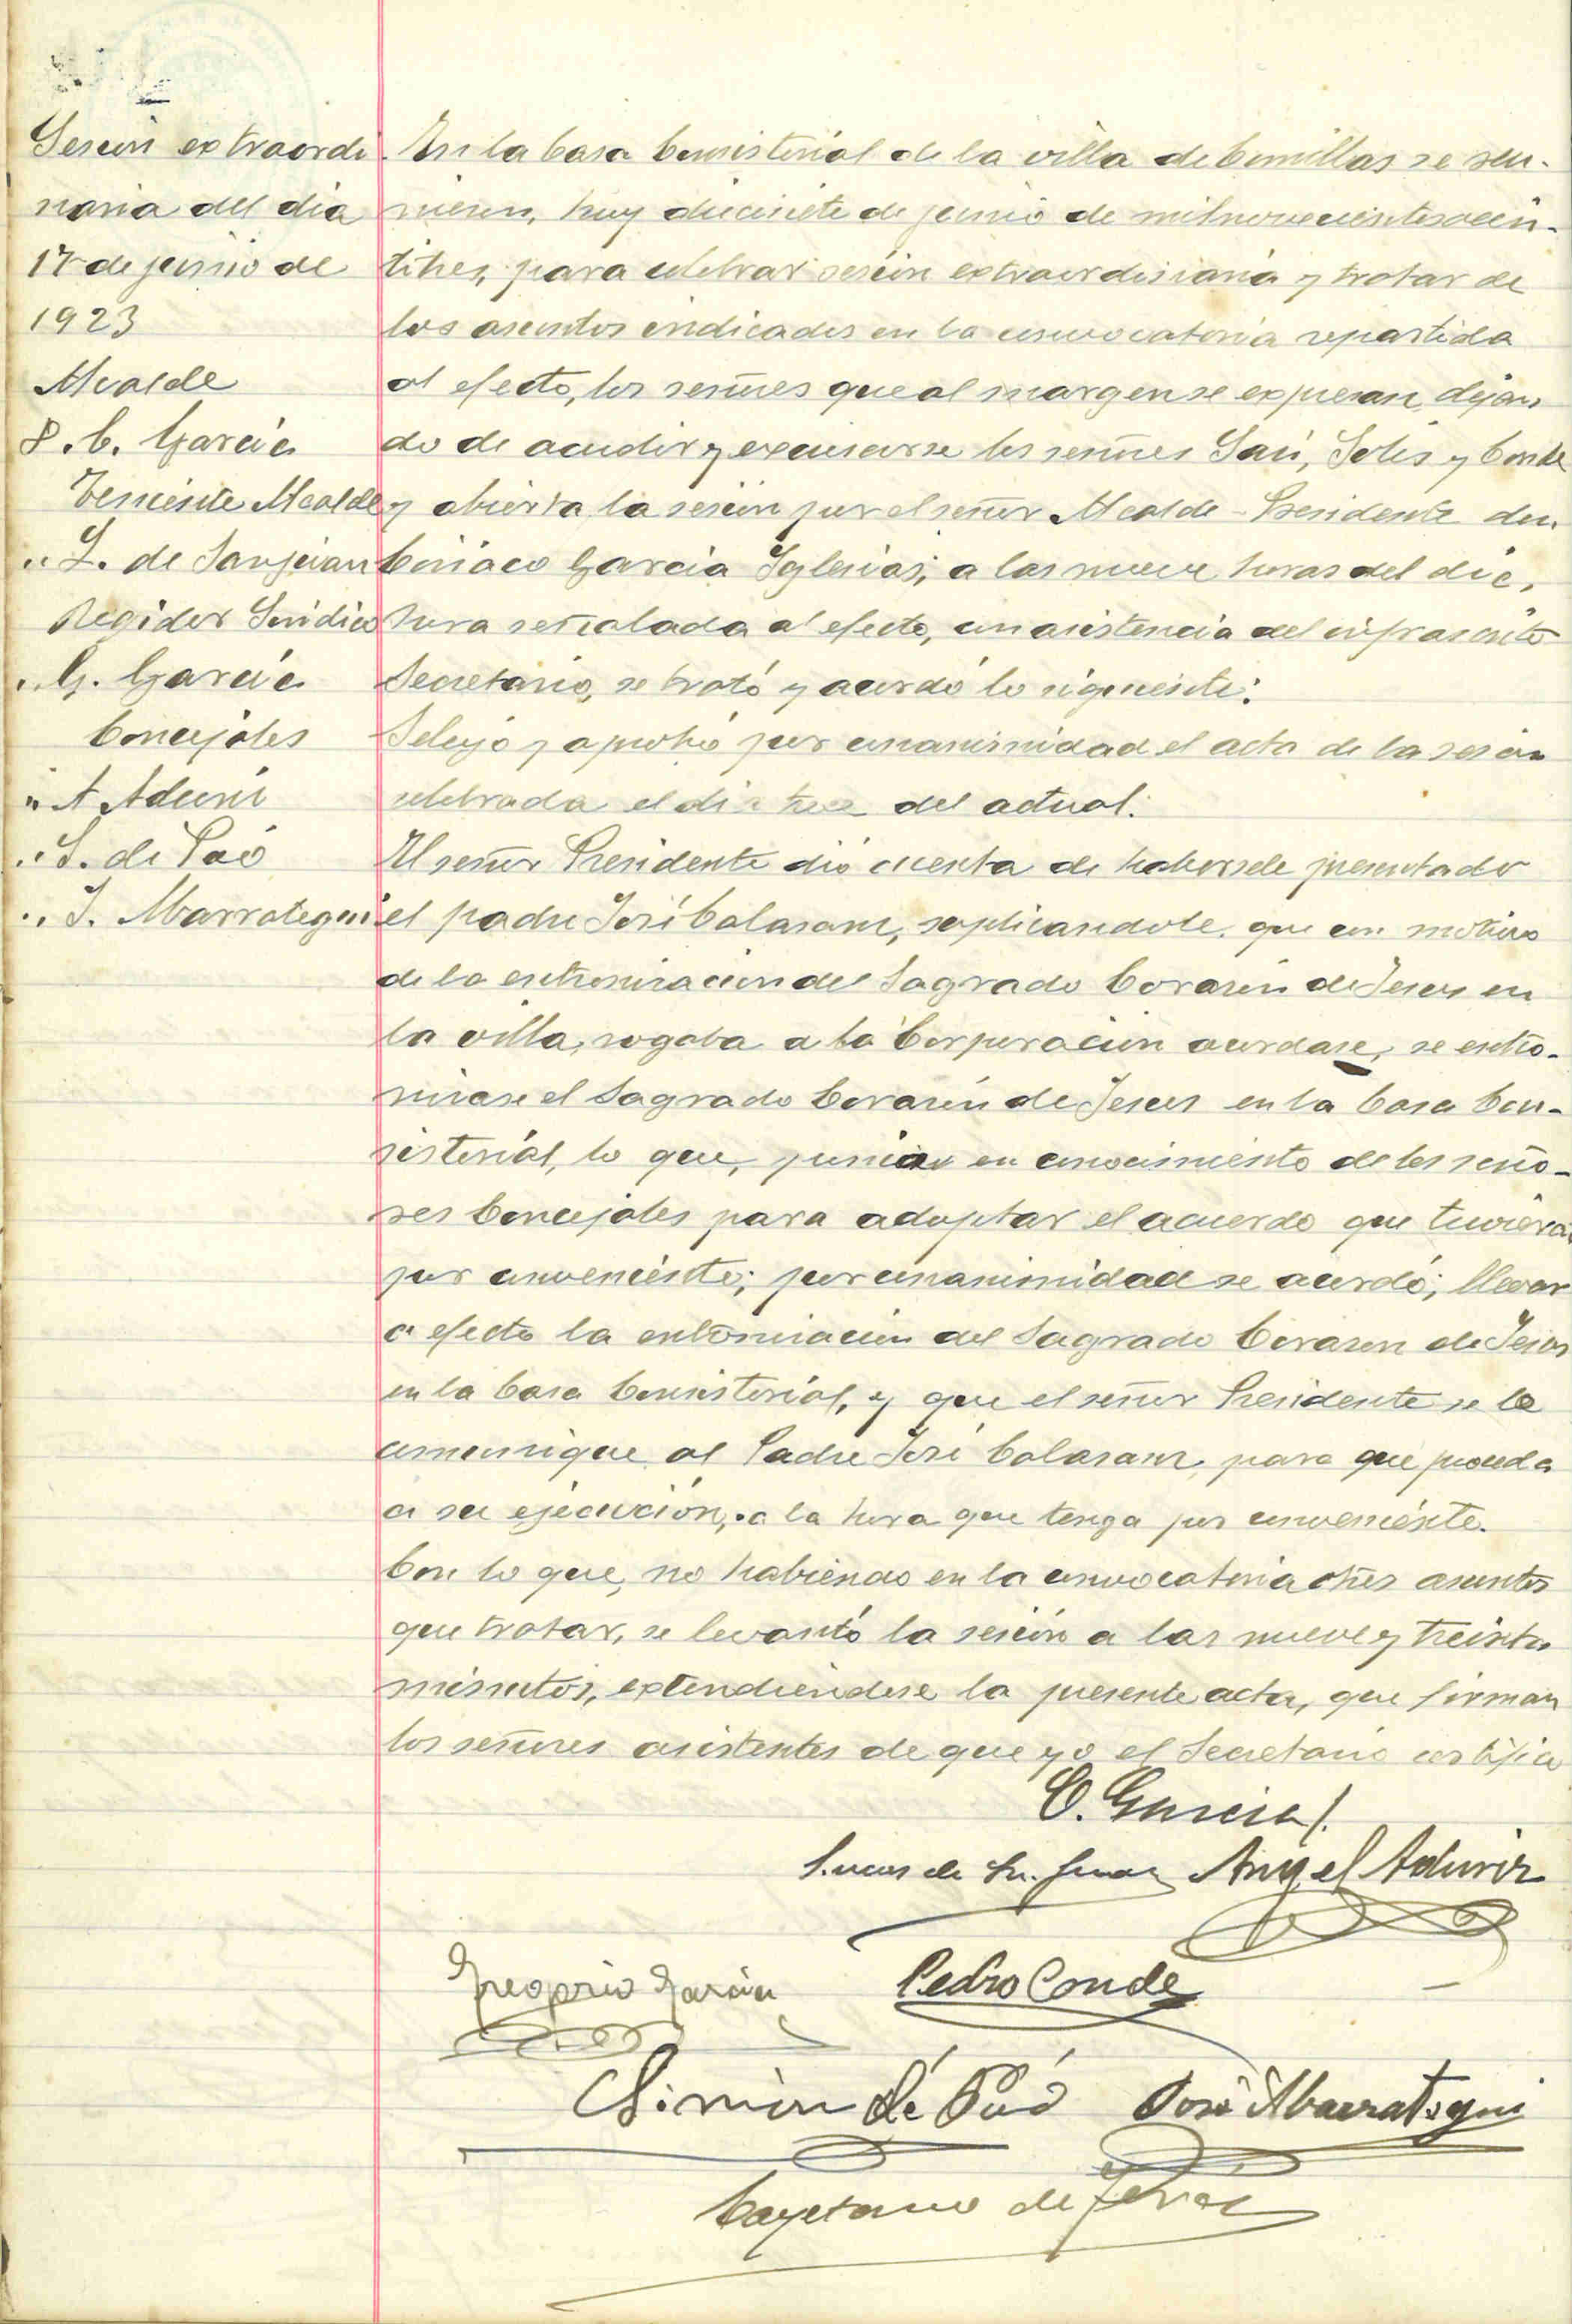 Sesión extraordi
naria del dia
17 de junio de
1923
Alcalde
D. C. García
Teniente Alcalde
" L. de Sanjuan
Regidor Síndico
" G. García
Concejales
" A Aduriz
" S. de Pað
" J. Abarrategui
En la Casa Consistorial de la villa de Comillas se reu-
nieron, hoy diecisiete de junio de mil novecientos vein-
titres, para celebrar sesión extraordinaria y tratar de
los asuntos indicados en la convocatoria repartida
al efecto, los señores que al margen se expresan, dejan
do de acudir y excusarse los señores Solis y Conde
y abierta la sesión por el señor Alcalde-Presidente don
Ciriaco Garcia Iglesias, a las nueve horas del dia,
hora señalada al efecto, con asistencia del infrascrito
Secretario, se trató y acordó lo siguiente:
Se leyó y aprobó por unanimidad el acta de la sesión
celebrada el dia trece del actual.
El señor Presidente dió cuenta de habersele presentado
el padre José Calasanz, suplicandole, que con motivo
de la entronización del Sagrado Corazón de Jesus en
la villa, rogaba a la Corporación acordase, se entro-
nizase el Sagrado Corazón de Jesus en la Casa Con-
sistorial, lo que, ponia en conocimiento de los seño-
res Concejales para adoptar el acuerdo que tuvieran
por conveniente; por unanimidad se acordó; llevar
a efecto la entronización del Sagrado Corazon de Jesus
en la Casa Consistorial, y que el señor Presidente se lo
comunique al Padre José Calasanz, para que proceda
a su ejecución, a la hora que tenga por conveniente.
Con lo que, no habiendo en la convocatoria otros asuntos
que tratar, se levantó la sesión a las nueve y treinta
minutos, extendiendose la presente acta, que firman
los señores asistentes de que yo el Secretario certifico
C. Garcia I.
Lucas de Sn. Juan Angel Aduriz
Gregorio Garcia Pedro Conde
Simón de Pað José Abarrategui
Cayetano de